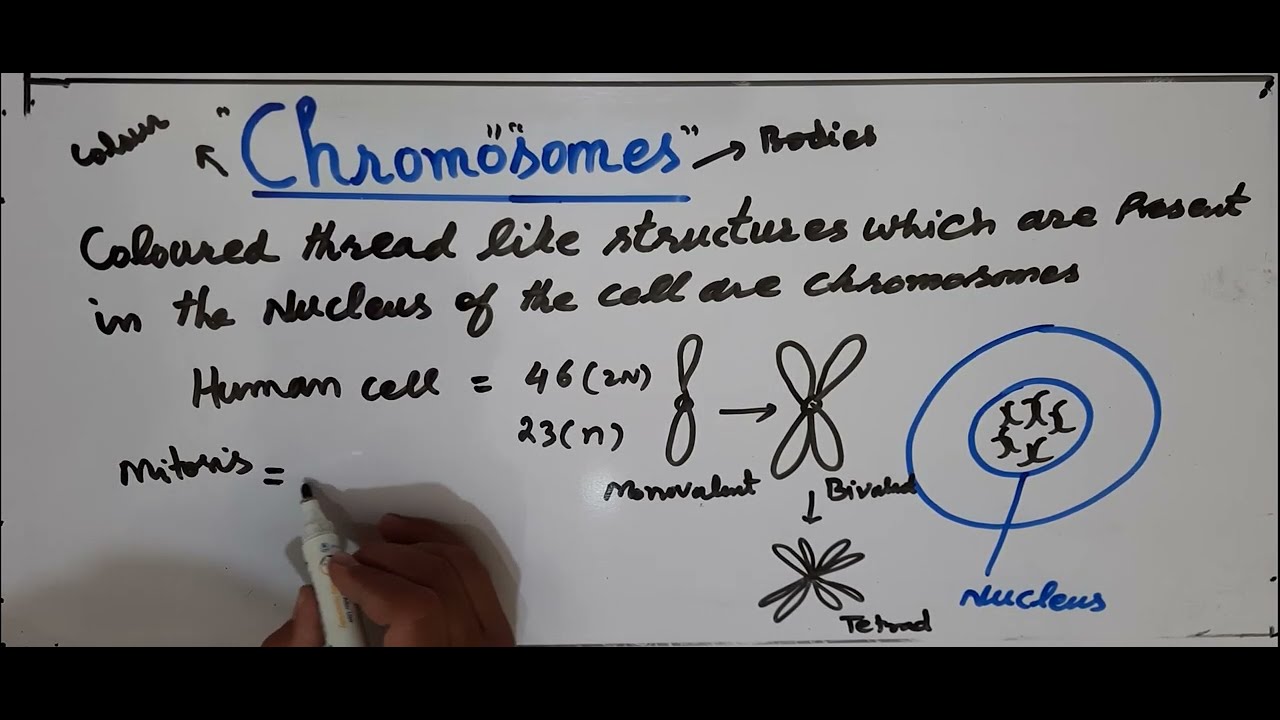 Colour "Chromo""somes" Bodies
Coloured thread like structures which are Present
in the Nucleus of the cell are chromosomes
Human cell = 46 (2N)
23 (n)
Mitosis =
Monovalent
Bivalent
Tetrad
Nucleus